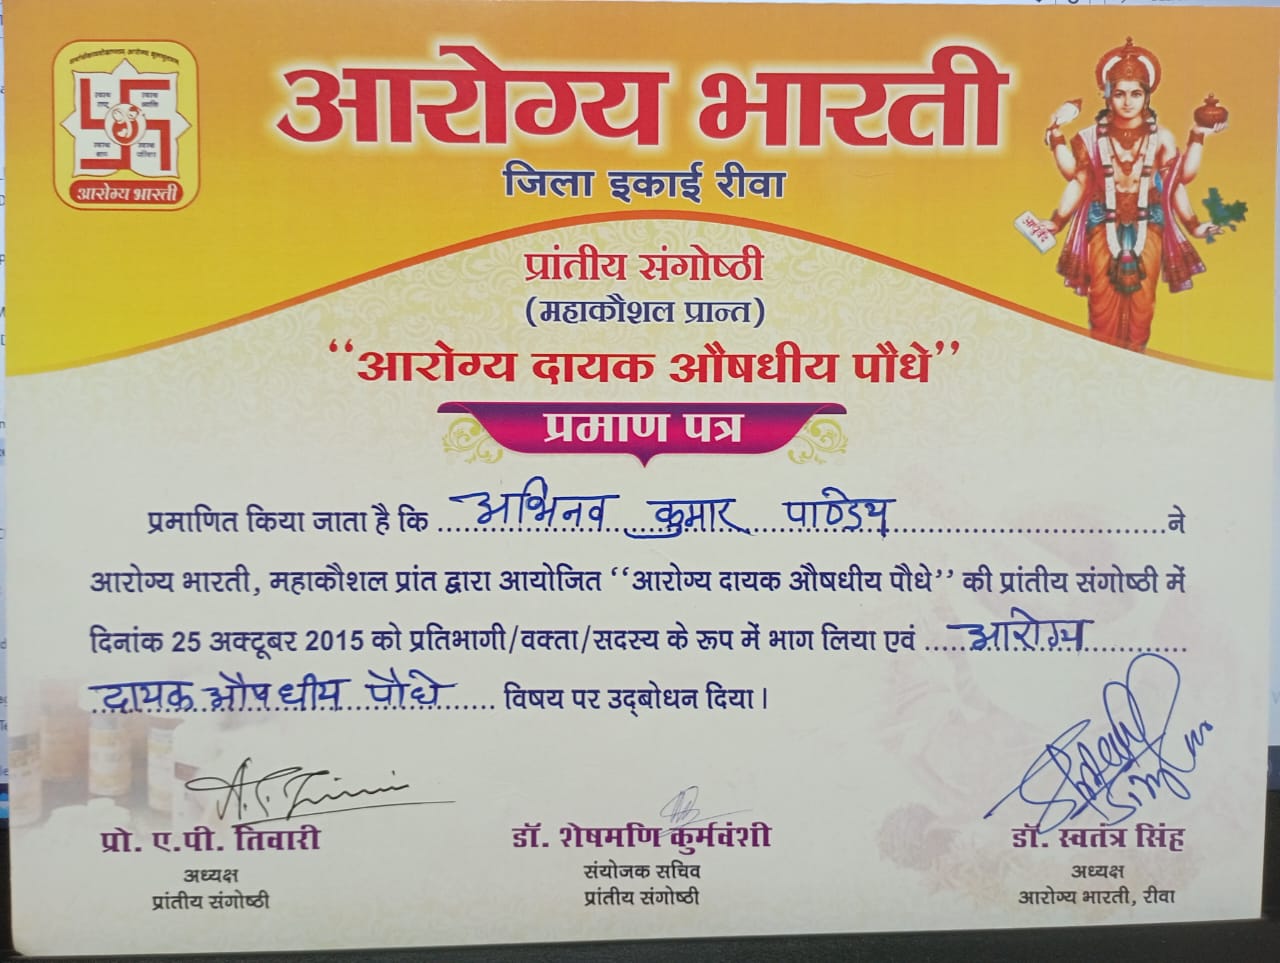 सर्वभाग्येकारोग्यम् आरोग्यं मूलमुत्तमम्
स्वस्थ राष्ट्र
स्वस्थ व्यक्ति
स्वस्थ ग्राम
स्वस्थ परिवार
आरोग्य भारती
आरोग्य भारती
जिला इकाई रीवा
आयुर्वेद
प्रांतीय संगोष्ठी
(महाकौशल प्रान्त)
“आरोग्य दायक औषधीय पौधे”
प्रमाण पत्र
प्रमाणित किया जाता है कि अभिनव कुमार पाण्डेय ने
आरोग्य भारती, महाकौशल प्रांत द्वारा आयोजित “आरोग्य दायक औषधीय पौधे” की प्रांतीय संगोष्ठी में
दिनांक 25 अक्टूबर 2015 को प्रतिभागी/वक्ता/सदस्य के रूप में भाग लिया एवं आरोग्य
दायक औषधीय पौधे विषय पर उद्बोधन दिया।
प्रो. ए.पी. तिवारी
अध्यक्ष
प्रांतीय संगोष्ठी
डॉ. शेषमणि कुर्मवंशी
संयोजक सचिव
प्रांतीय संगोष्ठी
डॉ. स्वतंत्र सिंह
अध्यक्ष
आरोग्य भारती, रीवा